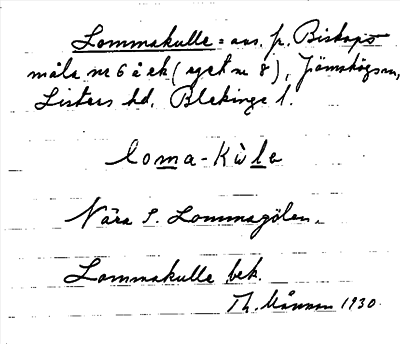 Lommakulle = ans. p. Biskops-
måla nr 6 å ek (eget nr 8), Jämshögs sn,
Listers hd, Blekinge l.
loma-kùle
Nära S. Lommagölen.
Lommakulle, bek.
Th. Månsson 1930.